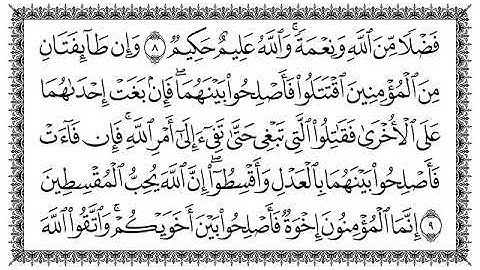 فَضۡلٗا مِّنَ ٱللَّهِ وَنِعۡمَةٗۚ وَٱللَّهُ عَلِيمٌ حَكِيمٞ ٨ وَإِن طَآئِفَتَانِ
مِنَ ٱلۡمُؤۡمِنِينَ ٱقۡتَتَلُواْ فَأَصۡلِحُواْ بَيۡنَهُمَاۖ فَإِنۢ بَغَتۡ إِحۡدَىٰهُمَا
عَلَى ٱلۡأُخۡرَىٰ فَقَٰتِلُواْ ٱلَّتِي تَبۡغِي حَتَّىٰ تَفِيٓءَ إِلَىٰٓ أَمۡرِ ٱللَّهِۚ فَإِن فَآءَتۡ
فَأَصۡلِحُواْ بَيۡنَهُمَا بِٱلۡعَدۡلِ وَأَقۡسِطُوٓاْۖ إِنَّ ٱللَّهَ يُحِبُّ ٱلۡمُقۡسِطِينَ
٩ إِنَّمَا ٱلۡمُؤۡمِنُونَ إِخۡوَةٞ فَأَصۡلِحُواْ بَيۡنَ أَخَوَيۡكُمۡۚ وَٱتَّقُواْ ٱللَّهَ